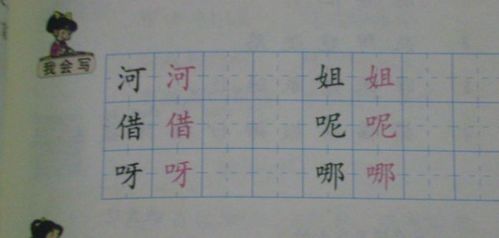 我会写
河河 姐姐
借借 呢呢
呀呀 哪哪